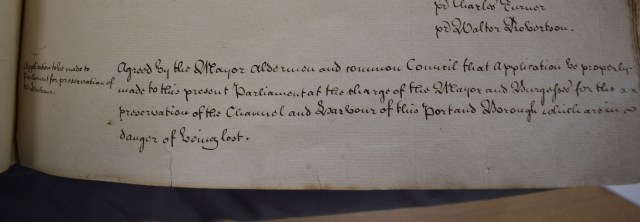 pr Charles Turner
pr Walter Robertson.
Application to be made to
Parliament for preservation of
Agreed by the Mayor Aldermen and common Council that Application be properly
made to this present Parliament at the charge of the Mayor and Burgesses for the
preservation of the Channel and Harbour of this Port and Borough which are in
danger of being lost.